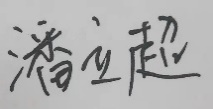 潘立超